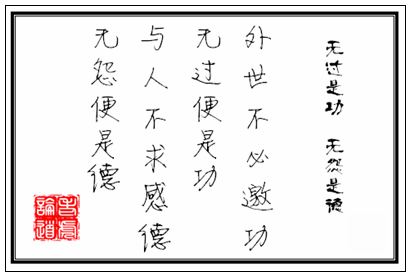 无过是功 无怨是德
处世不必邀功
无过便是功
与人不求感德
无怨便是德
論道